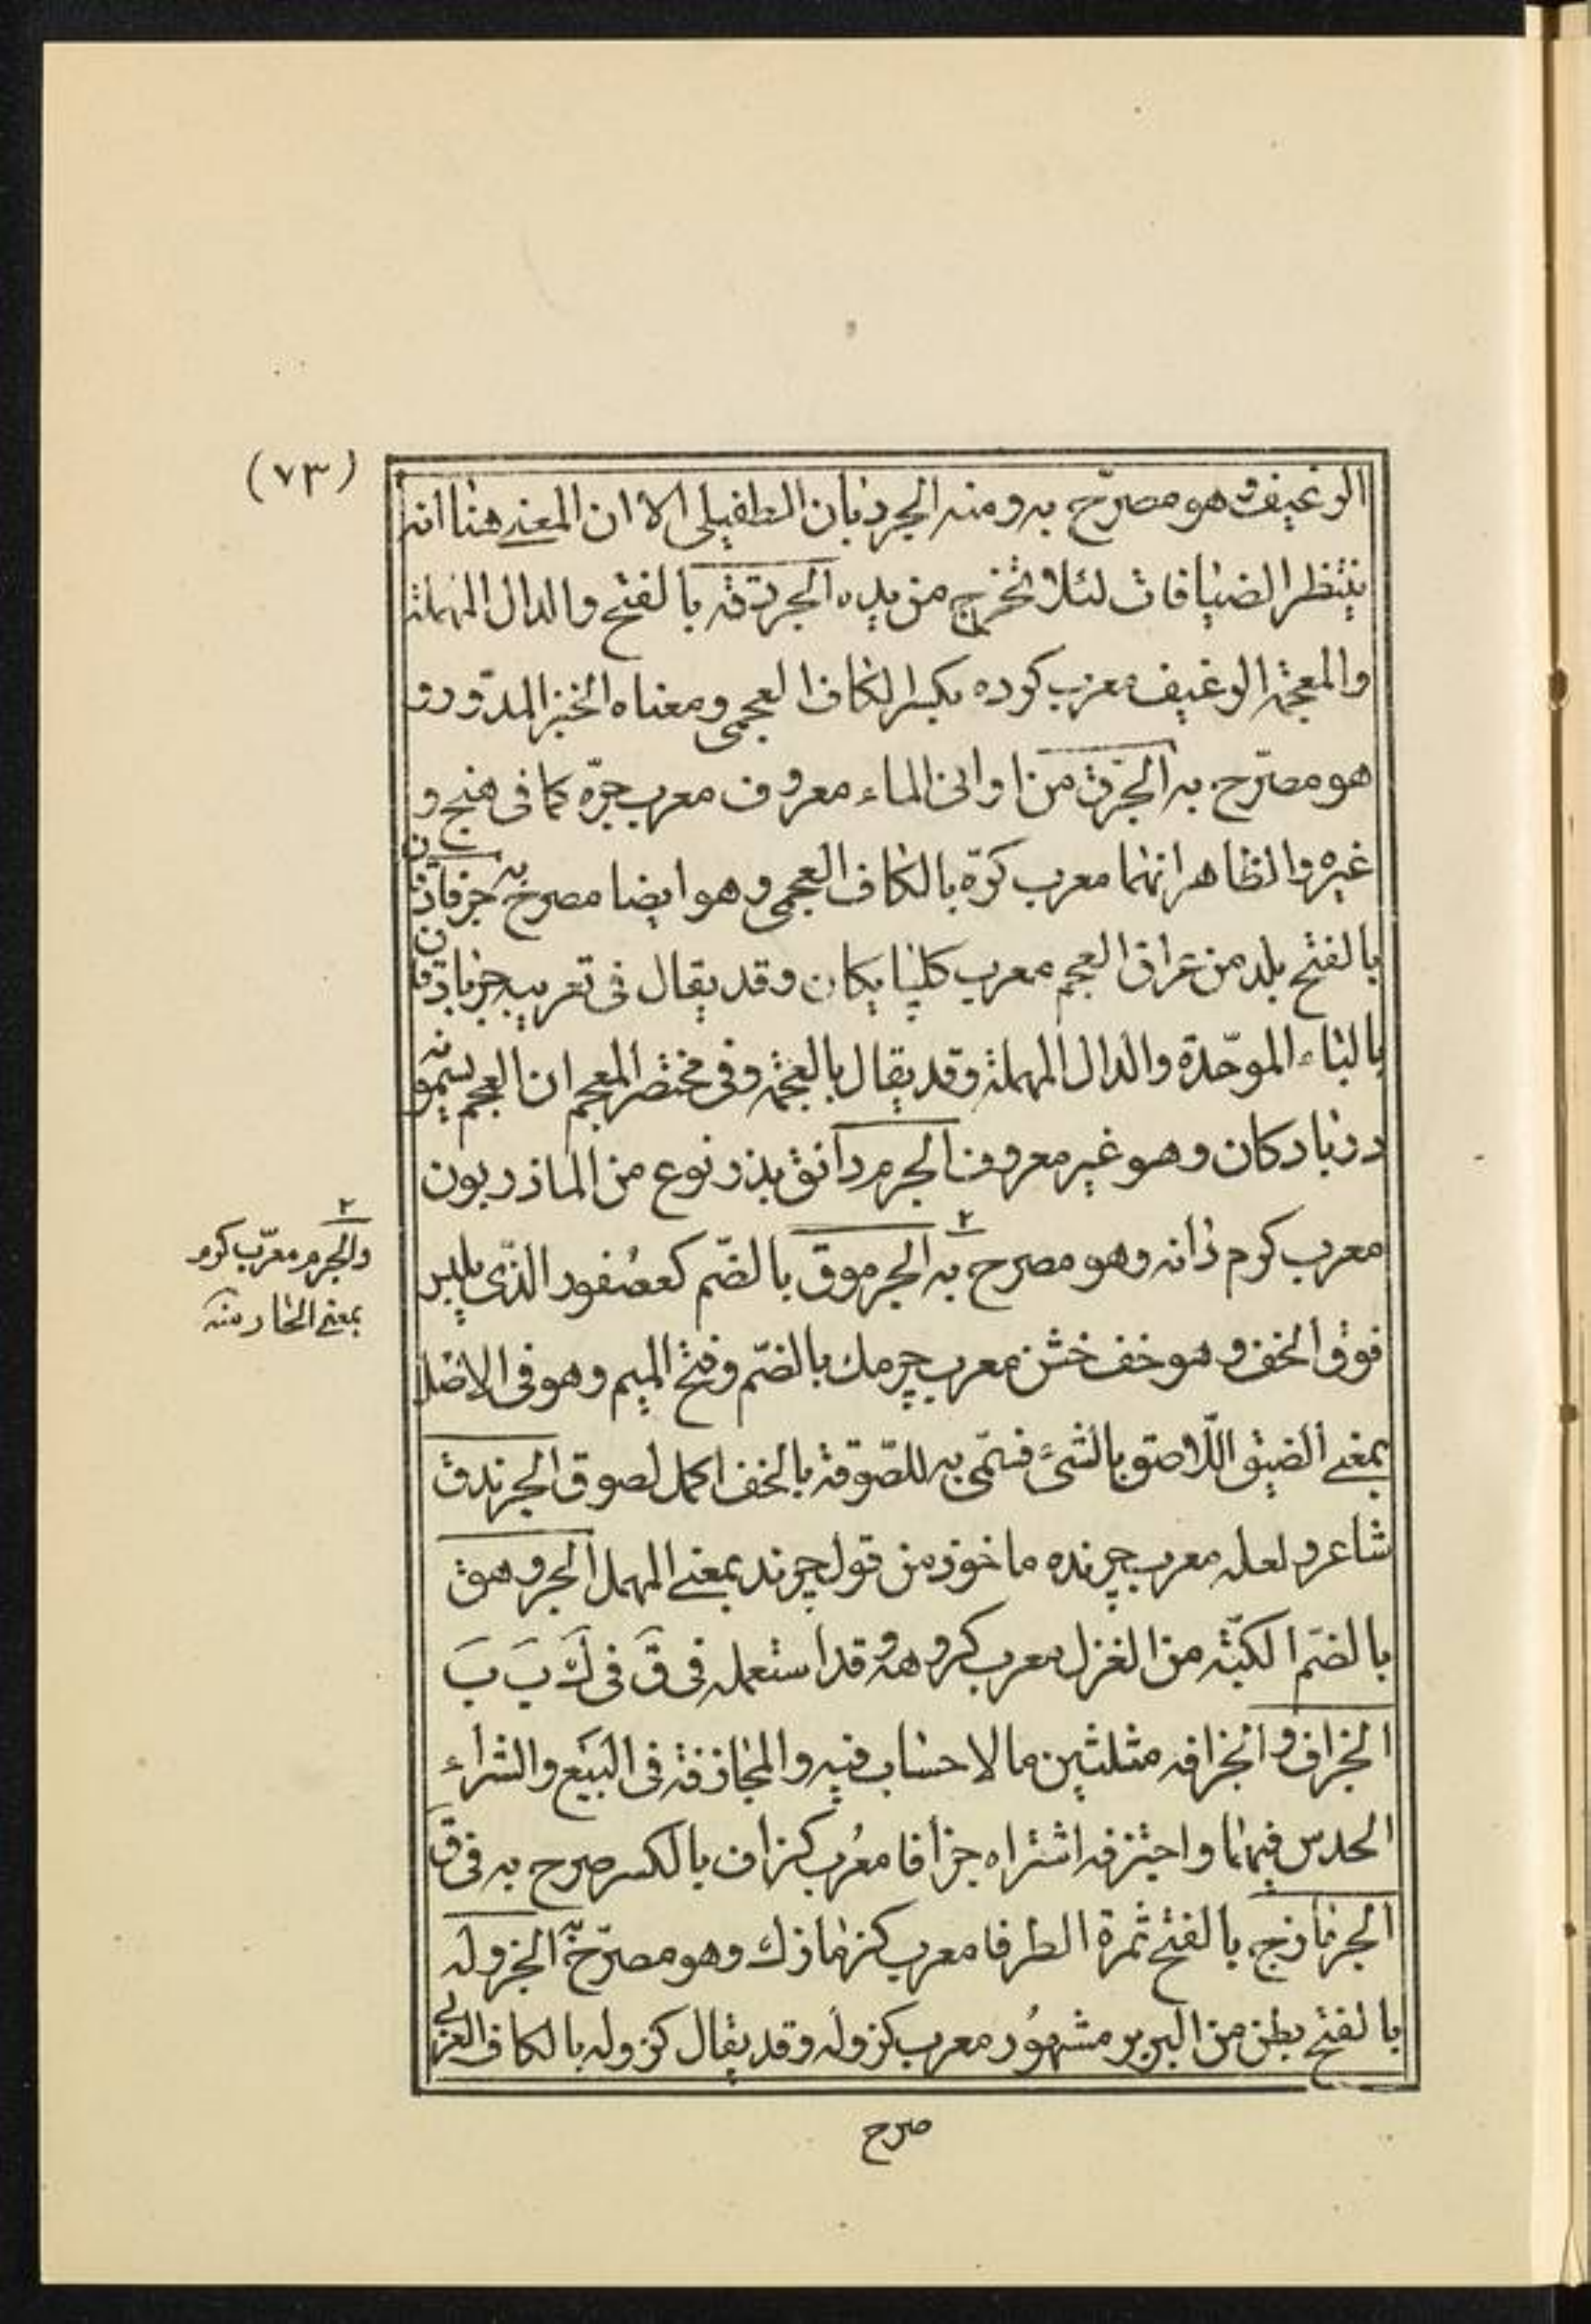 (٧٣)
الوغيف وهو مصرّح به ومنه الجردبان الطفيلى الا ان المعنى هنا انه
ينتظر الضيافات لئلا تخرج من يده الجردقه بالفتح والدال المهملة
والمعجمة الوغيف معرب كوده بكسر الكاف العجمى ومعناه الخبز المدّور و
هو مصرّح به الجرّة من اوانى الماء معروف معرب جرّه كما فى منج و
غيره والظاهر انهما معرب كرّه بالكاف العجمى وهو ايضا مصرح به جرفاذقان
بالفتح بلد من عراق العجم معرب كلپايكان وقد يقال فى تعريبه جرباذقان
بالباء الموحّدة والدال المهملة وقد يقال بالعجمة وفى مختصر المعجم ان العجم يسمونه
دربادكان وهو غير معروف الجرم دانق بذر نوع من الماذريون
معرب كوم دانه وهو مصرح به ٢ الجرموق بالضّم كعصُفور الذّى يلبس
فوق الخف وهو خف خشن معرب چرمك بالضّم وفتح الميم وهو فى الاصل
بمعنى الضيق اللّاصق بالشئ فسمّى به للصّوقه بالخف اكمل لصوق الجرندق
شاعر ولعله معرب چرنده ماخوذ من قول چرند بمعنى المهمل الجروهق
بالضّم الكبّة من الغزل معرب كروهه وقد استعمله فى قَ فى كَ بَ بَ
الجزاف والجزافه مثلثين ما لا حساب فيه والمجازفة فى البَيَع والشراء
الحدس فيهما واجتزفه اشتراه جزافا معُرب كزاف بالكسر صرح به فى قَ
الجزمازج بالفتح ثمرة الطرفا معرب كزمازك وهو مصرّح به الجزوله
بالفتح بطن من البربر مشهوُر معرب كزوله وقد يقال كزوله بالكاف العربى
٢
والجرم معرّب كوم
بمعنى الحار منه
صرح